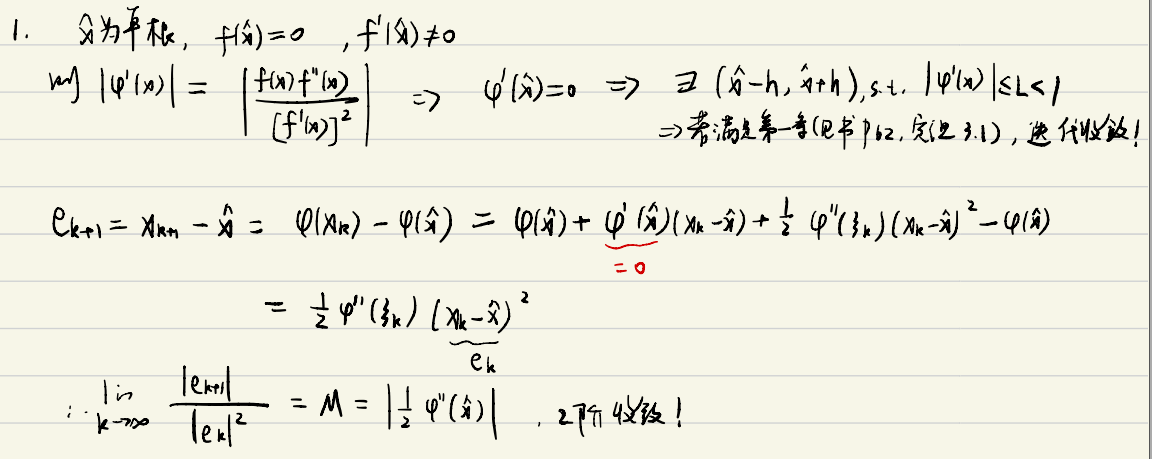 1. x̂为单根, f(x̂)=0 , f'(x̂)≠0
则 |φ'(x)| = |f(x)f''(x) / [f'(x)]²| ⇒ φ'(x̂)=0 ⇒ ∃ (x̂-h, x̂+h), s.t. |φ'(x)|≤L<1
⇒ 若满足第一章(见书P62, 定理3.1), 迭代收敛!
e_{k+1} = x_{k+1} - x̂ = φ(x_k) - φ(x̂) = φ(x̂) + φ'(x̂)(x_k-x̂) + ½ φ''(ξ_k)(x_k-x̂)² - φ(x̂)
=0
= ½ φ''(ξ_k) (x_k-x̂)²
e_k
∴ lim_{k→∞} |e_{k+1}| / |e_k|² = M = |½ φ''(x̂)| , 2阶收敛!